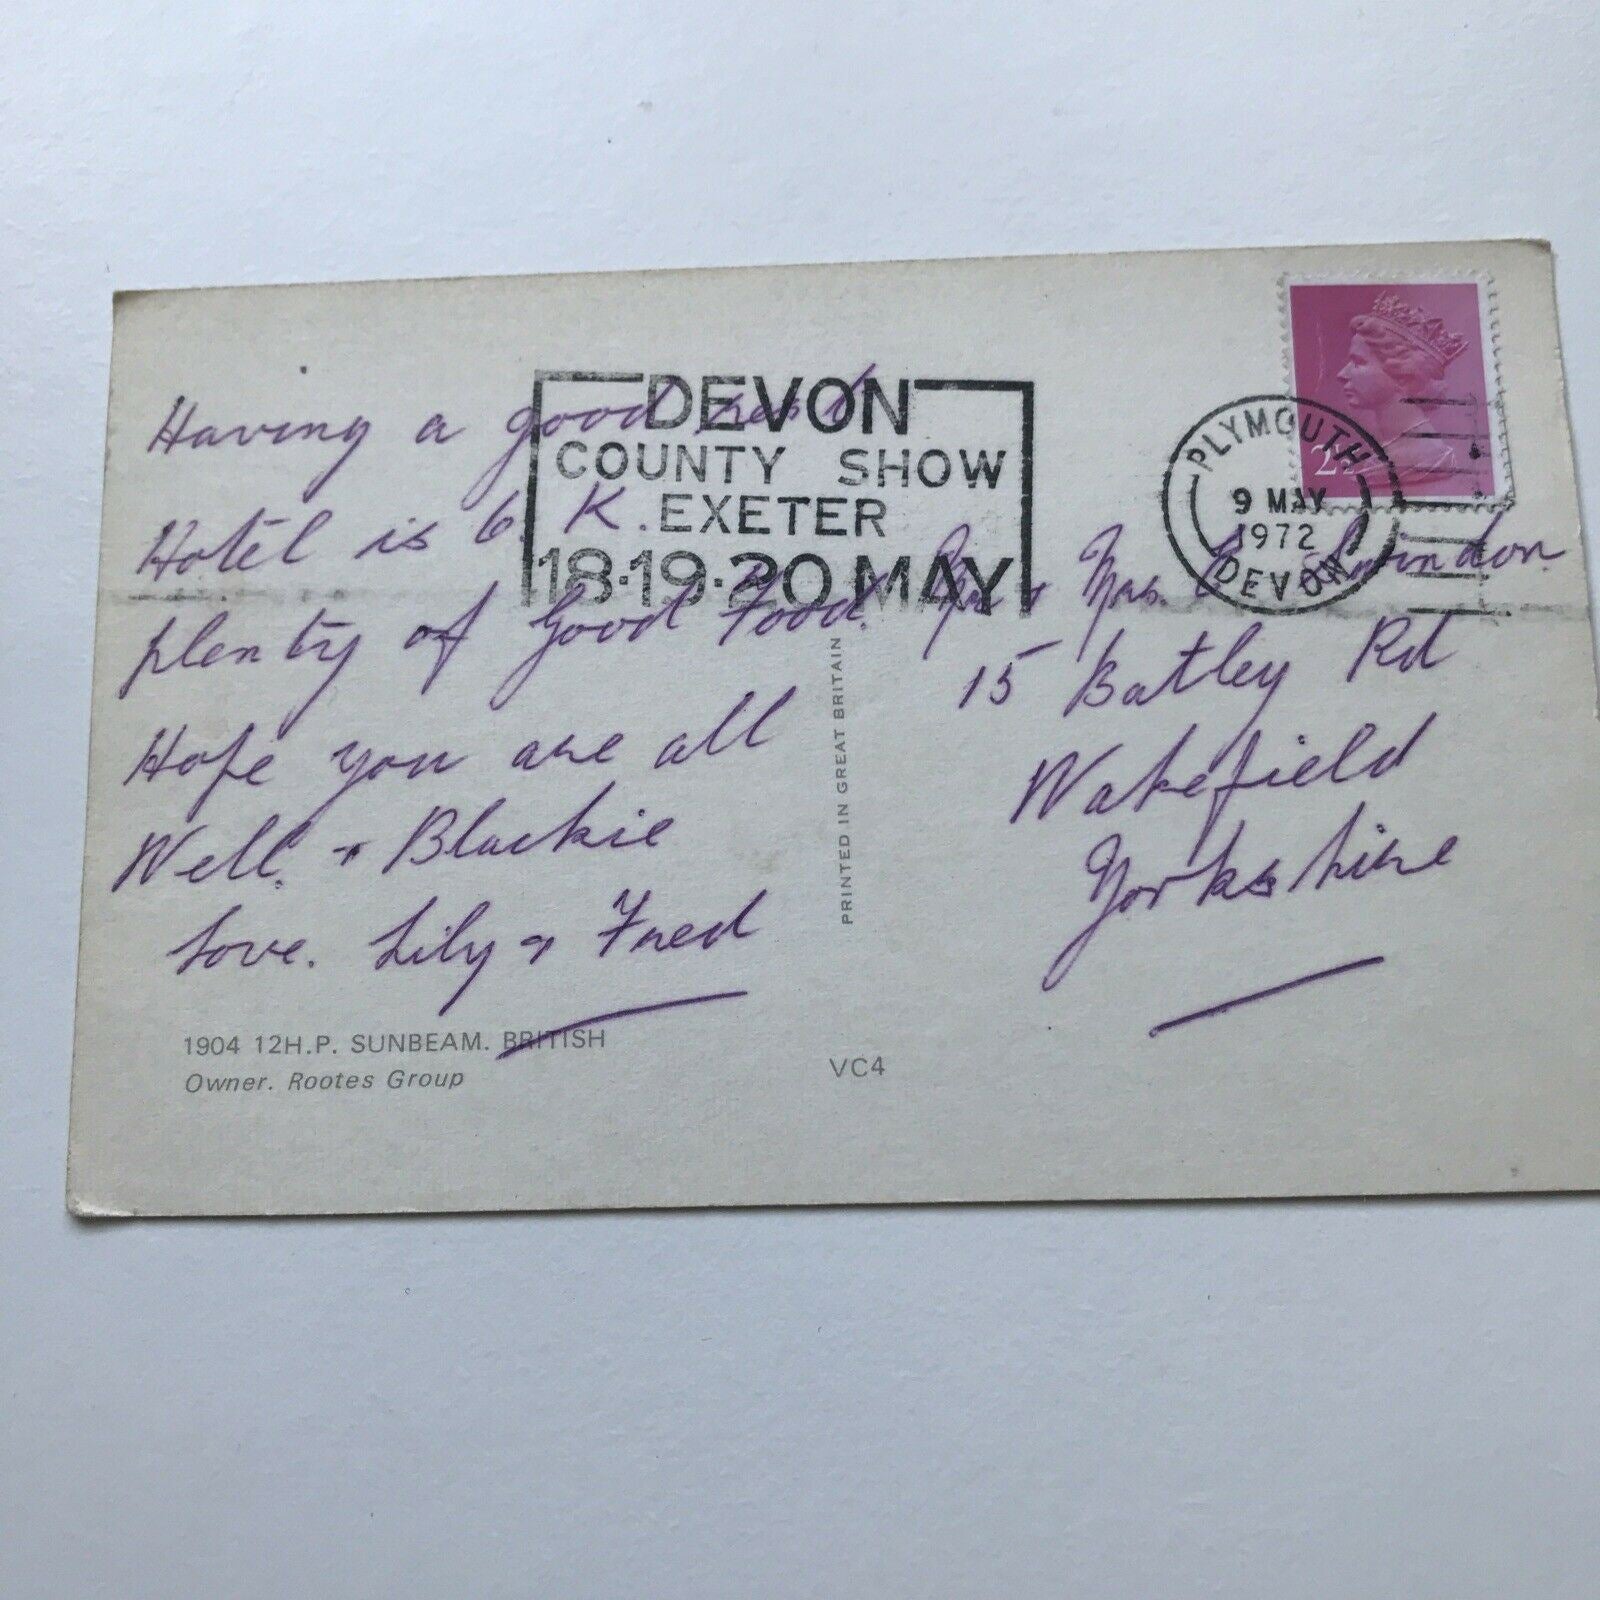 Having a good rest
Hotel is O.K.
plenty of Good Food.
Hope you are all
Well. + Blackie
Love. Lily & Fred
1904 12H.P. SUNBEAM. BRITISH
Owner. Rootes Group
DEVON
COUNTY SHOW
EXETER
18·19·20 MAY
PRINTED IN GREAT BRITAIN
VC4
PLYMOUTH
9 MAY
1972
DEVON
Mr & Mrs. E. Swindon
15 Batley Rd
Wakefield
Yorkshire